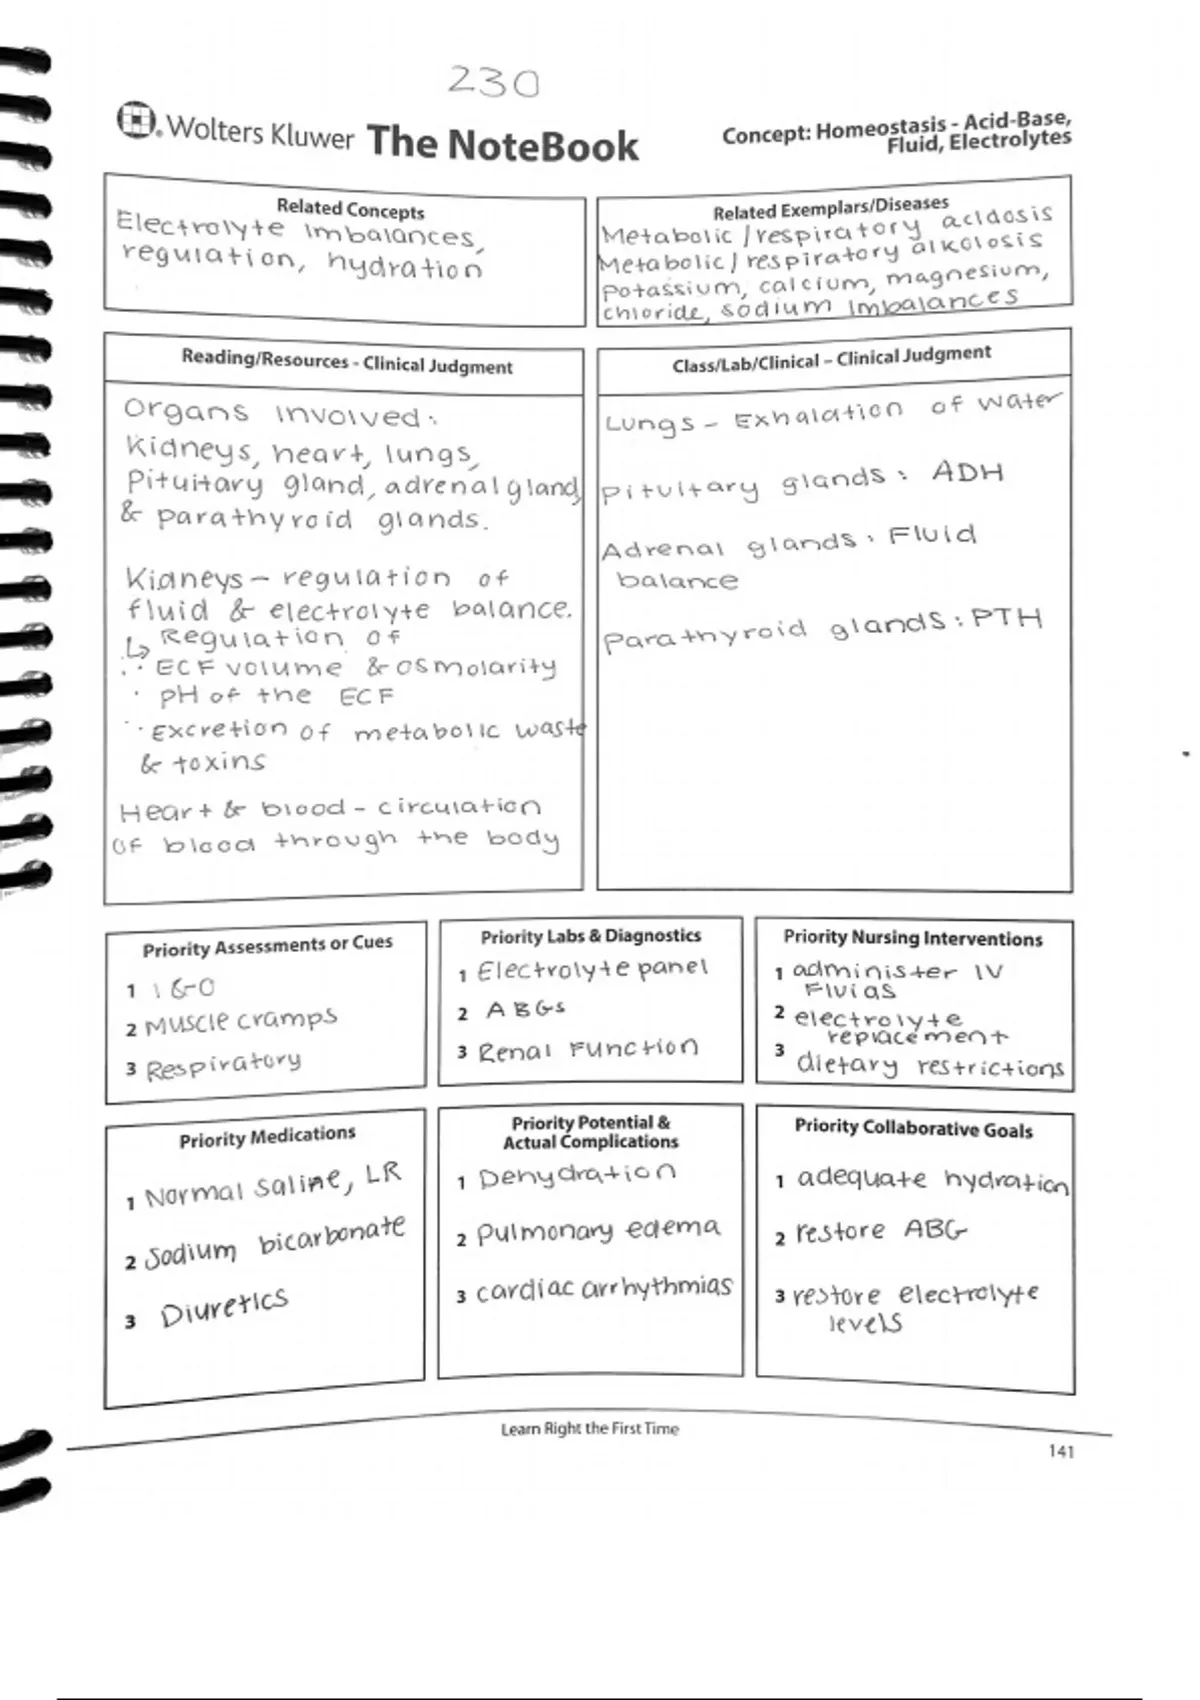 230
Wolters Kluwer The NoteBook
Concept: Homeostasis - Acid-Base,
Fluid, Electrolytes
Related Concepts
Electrolyte Imbalances,
regulation, hydration
Related Exemplars/Diseases
Metabolic / respiratory acidosis
Metabolic / respiratory alkolosis
Potassium, calcium, magnesium,
chloride, sodium Imbalances
Reading/Resources - Clinical Judgment
Organs involved:
Kidneys, heart, lungs,
Pituitary gland, adrenal gland,
& parathyroid glands.
Kidneys - regulation of
fluid & electrolyte balance.
↳ Regulation of
· ECF volume & osmolarity
· pH of the ECF
· Excretion of metabolic waste
& toxins
Heart & blood - circulation
of blood through the body
Class/Lab/Clinical – Clinical Judgment
Lungs - Exhalation of water
Pituitary glands: ADH
Adrenal glands: Fluid
balance
Parathyroid glands: PTH
Priority Assessments or Cues
1 I & O
2 Muscle cramps
3 Respiratory
Priority Labs & Diagnostics
1 Electrolyte panel
2 ABGs
3 Renal Function
Priority Nursing Interventions
1 administer IV
Fluids
2 electrolyte
replacement
3 dietary restrictions
Priority Medications
1 Normal saline, LR
2 Sodium bicarbonate
3 Diuretics
Priority Potential &
Actual Complications
1 Dehydration
2 Pulmonary edema
3 cardiac arrhythmias
Priority Collaborative Goals
1 adequate hydration
2 restore ABG
3 restore electrolyte
levels
Learn Right the First Time
141